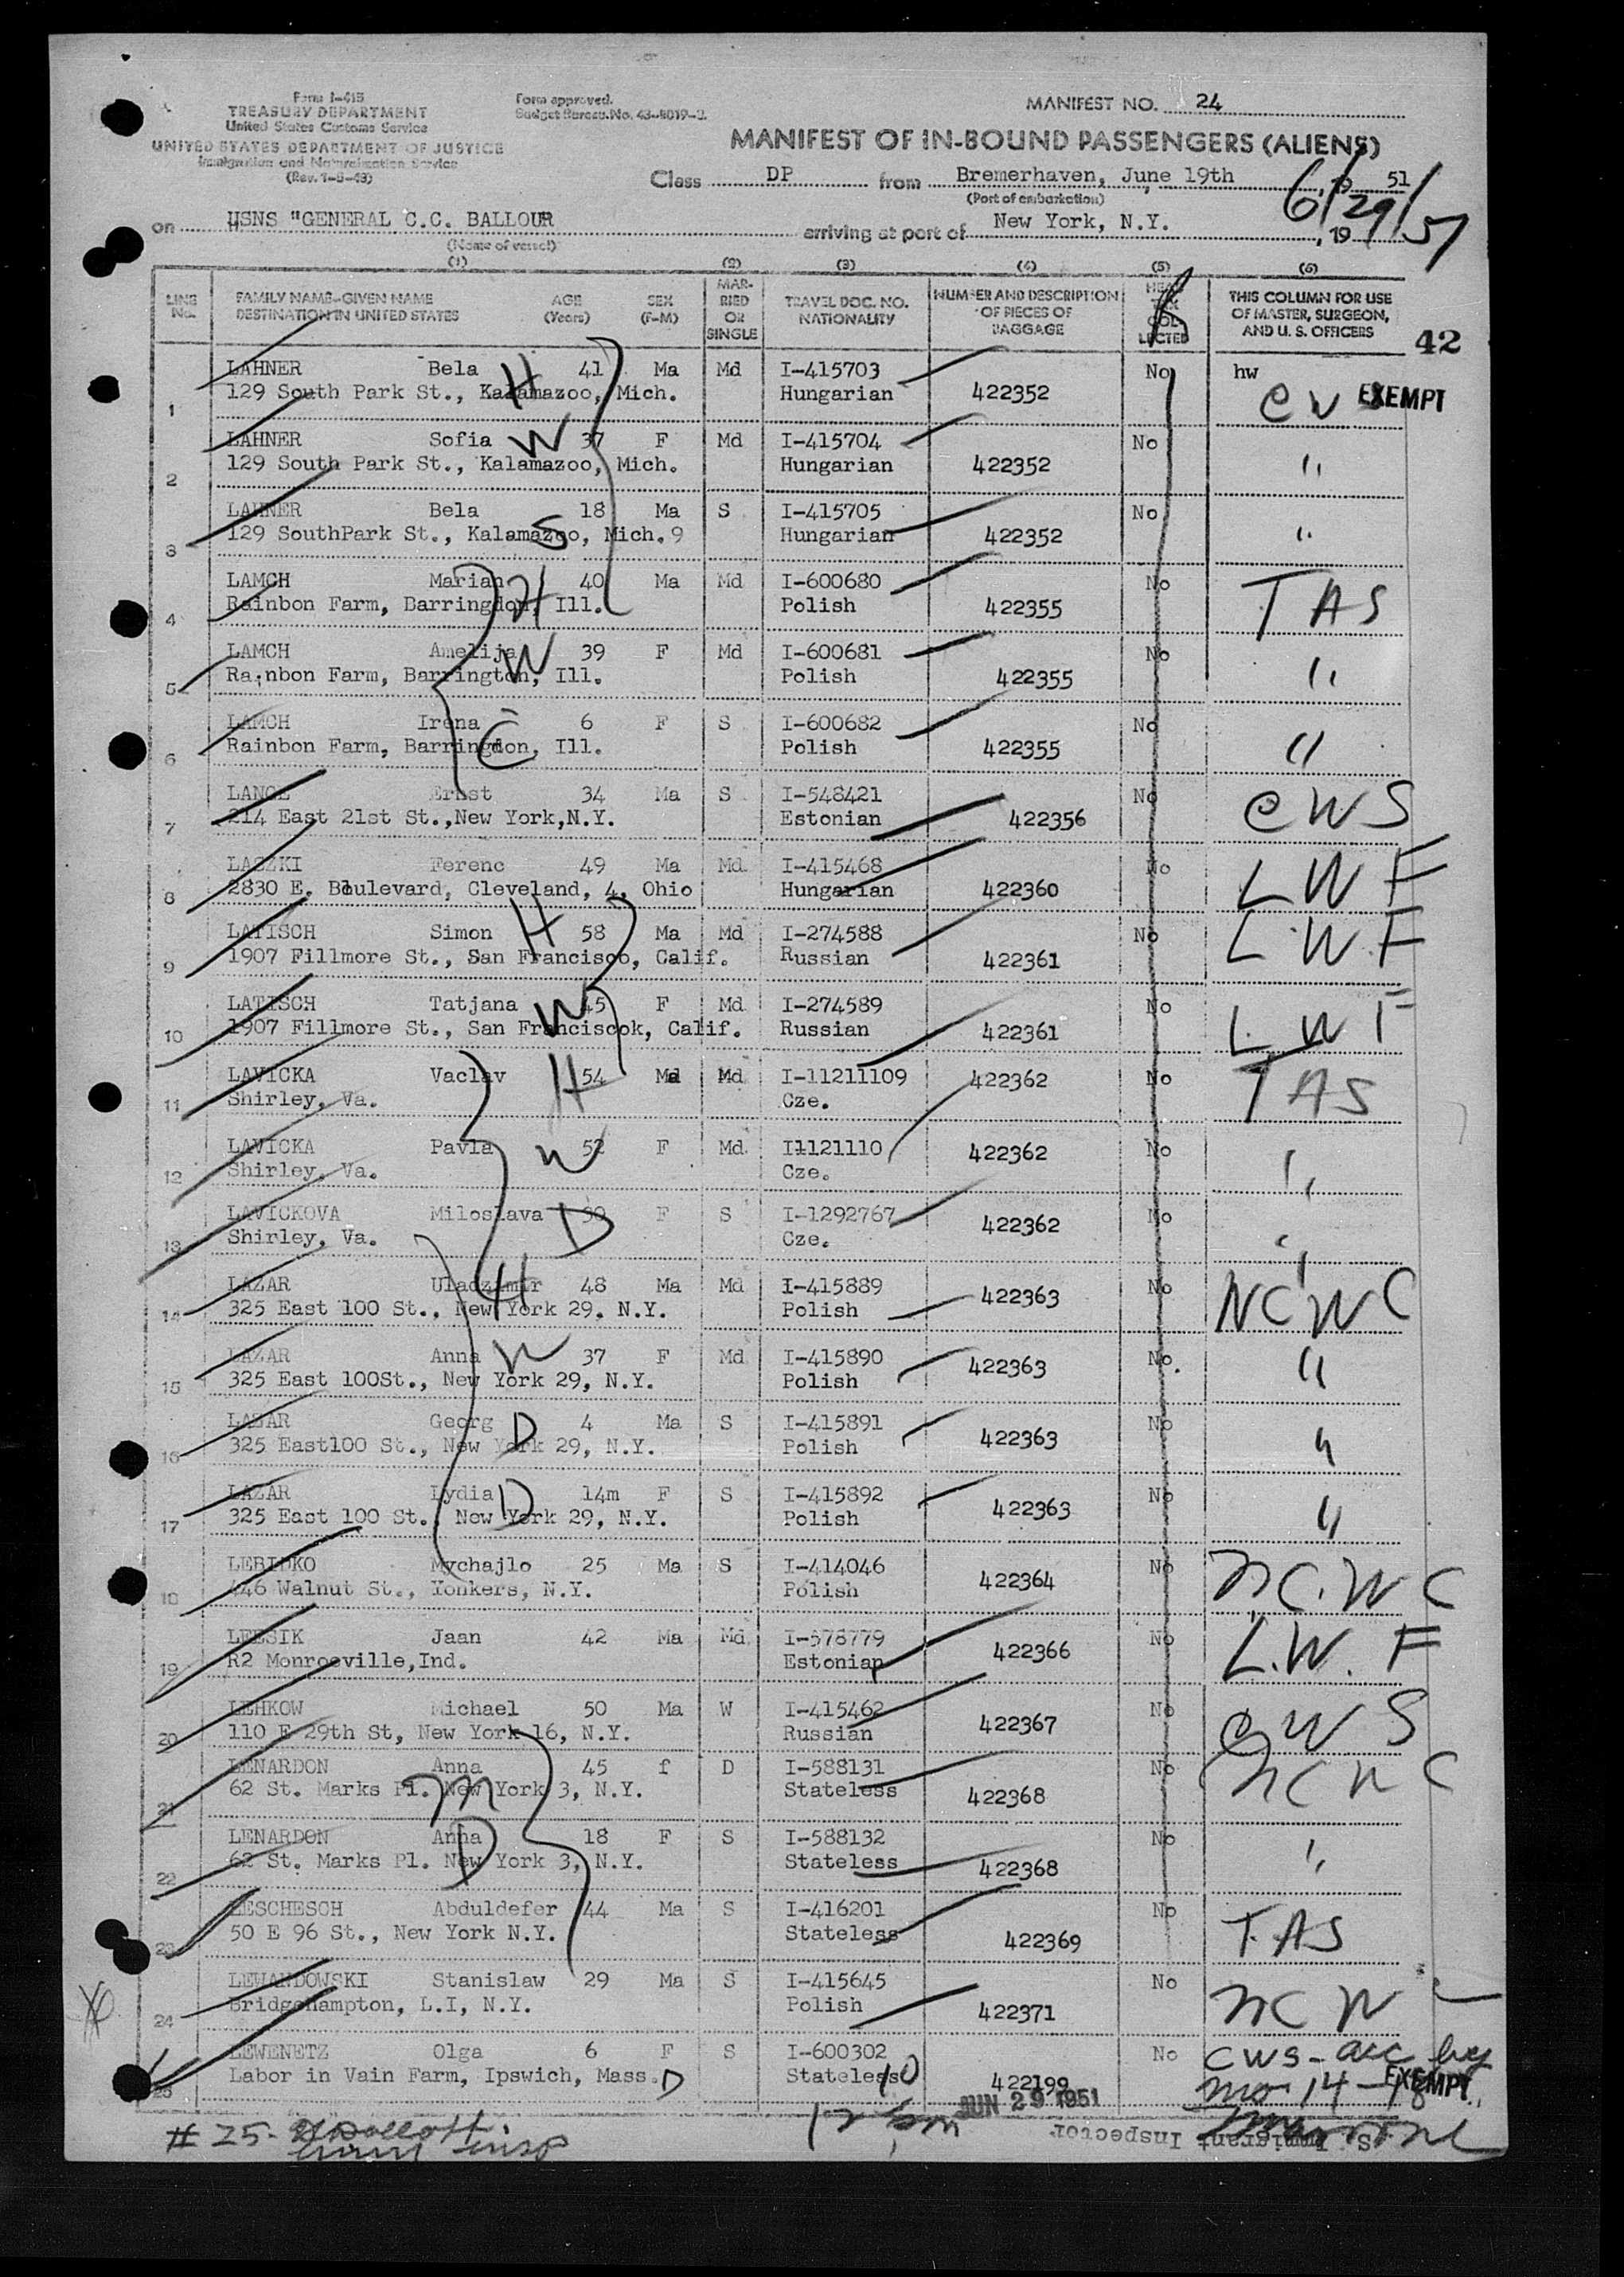 Form I-415
TREASURY DEPARTMENT
United States Customs Service
UNITED STATES DEPARTMENT OF JUSTICE
Immigration and Naturalization Service
(Rev. 1-5-49)
Form approved.
Budget Bureau No. 43-R019-2.
MANIFEST NO. 24
MANIFEST OF IN-BOUND PASSENGERS (ALIENS)
Class DP from Bremerhaven, June 19th, 19 51
(Port of embarkation)
6/29/51
on USNS "GENERAL C.C. BALLOUR arriving at port of New York, N.Y., 19
(Name of vessel)
(1) (2) (3) (4) (5) (6)
LINE No. FAMILY NAME-GIVEN NAME DESTINATION IN UNITED STATES AGE (Years) SEX (F-M) MARRIED OR SINGLE TRAVEL DOC. NO. NATIONALITY NUMBER AND DESCRIPTION OF PIECES OF BAGGAGE HEAD TAX COLLECTED THIS COLUMN FOR USE OF MASTER, SURGEON, AND U. S. OFFICERS
42
LAHNER Bela H 41 Ma Md I-415703 No hw
1 129 South Park St., Kalamazoo, Mich. Hungarian 422352 CW EXEMPT
LAHNER Sofia W 37 F Md I-415704 No
2 129 South Park St., Kalamazoo, Mich. Hungarian 422352 "
LAHNER Bela 18 Ma S I-415705 No
3 129 SouthPark St., Kalamazoo, Mich. 9 S Hungarian 422352 "
LAMCH Marian H 40 Ma Md I-600680 No
4 Rainbon Farm, Barringdon, Ill. Polish 422355 TAS
LAMCH Amelija W 39 F Md I-600681 No
5 Rainbon Farm, Barrington, Ill. Polish 422355 "
LAMCH Irena C 6 F S I-600682 No
6 Rainbon Farm, Barringdon, Ill. Polish 422355 "
LANGE Ernst 34 Ma S I-548421 No
7 214 East 21st St.,New York,N.Y. Estonian 422356 CWS
LASZKI Ferenc 49 Ma Md I-415468 No
8 2830 E. Boulevard, Cleveland, 4, Ohio Hungarian 422360 LWF
LATISCH Simon H 58 Ma Md I-274588 No
9 1907 Fillmore St., San Francisco, Calif. Russian 422361 L.W.F
LATISCH Tatjana W 45 F Md I-274589 No
10 1907 Fillmore St., San Franciscok, Calif. Russian 422361 L.W F
LAVICKA Vaclav H 54 Md Md I-11211109 422362 No
11 Shirley, Va. Cze. TAS
LAVICKA Pavla W 52 F Md I1121110 422362 No
12 Shirley, Va. Cze. "
LAVICKOVA Miloslava D 30 F S I-1292767 422362 No
13 Shirley, Va. Cze. "
LAZAR Uladzimir H 48 Ma Md I-415889 422363 No
14 325 East 100 St., New York 29. N.Y. Polish NCWC
LAZAR Anna W 37 F Md I-415890 422363 No.
15 325 East 100St., New York 29, N.Y. Polish "
LABAR Georg D 4 Ma S I-415891 422363 No
16 325 East100 St., New York 29, N.Y. Polish "
LAZAR Lydia D 14m F S I-415892 422363 No
17 325 East 100 St., New York 29, N.Y. Polish "
Mychajlo 25 Ma S I-414046 422364 No
18 446 Walnut St., Yonkers, N.Y. Polish NC.WC
LEESIK Jaan 42 Ma Md I-578779 422366 No
19 R2 Monroeville,Ind. Estonian L.W.F
LEHKOW Michael 50 Ma W I-415462 422367 No
20 110 E 29th St, New York 16, N.Y. Russian CWS
LENARDON Anna 45 f D I-588131 No
21 62 St. Marks Pl. New York 3, N.Y. M Stateless 422368 NCWC
LENARDON Anna D 18 F S I-588132 No
22 62 St. Marks Pl. New York 3, N.Y. Stateless 422368 "
LESCHESCH Abduldefer 44 Ma S I-416201 No
23 50 E 96 St., New York N.Y. Stateless 422369 T.AS
LEWANDOWSKI Stanislaw 29 Ma S I-415645 No
24 Bridgehampton, L.I, N.Y. Polish 422371 NCWC
LEWENETZ Olga 6 F S I-600302 No CWS - acc by
25 Labor in Vain Farm, Ipswich, Mass. D Stateless 10 422199 mo 14-18 EXEMPT
JUN 29 1951
# 25-
Immigrant Inspector